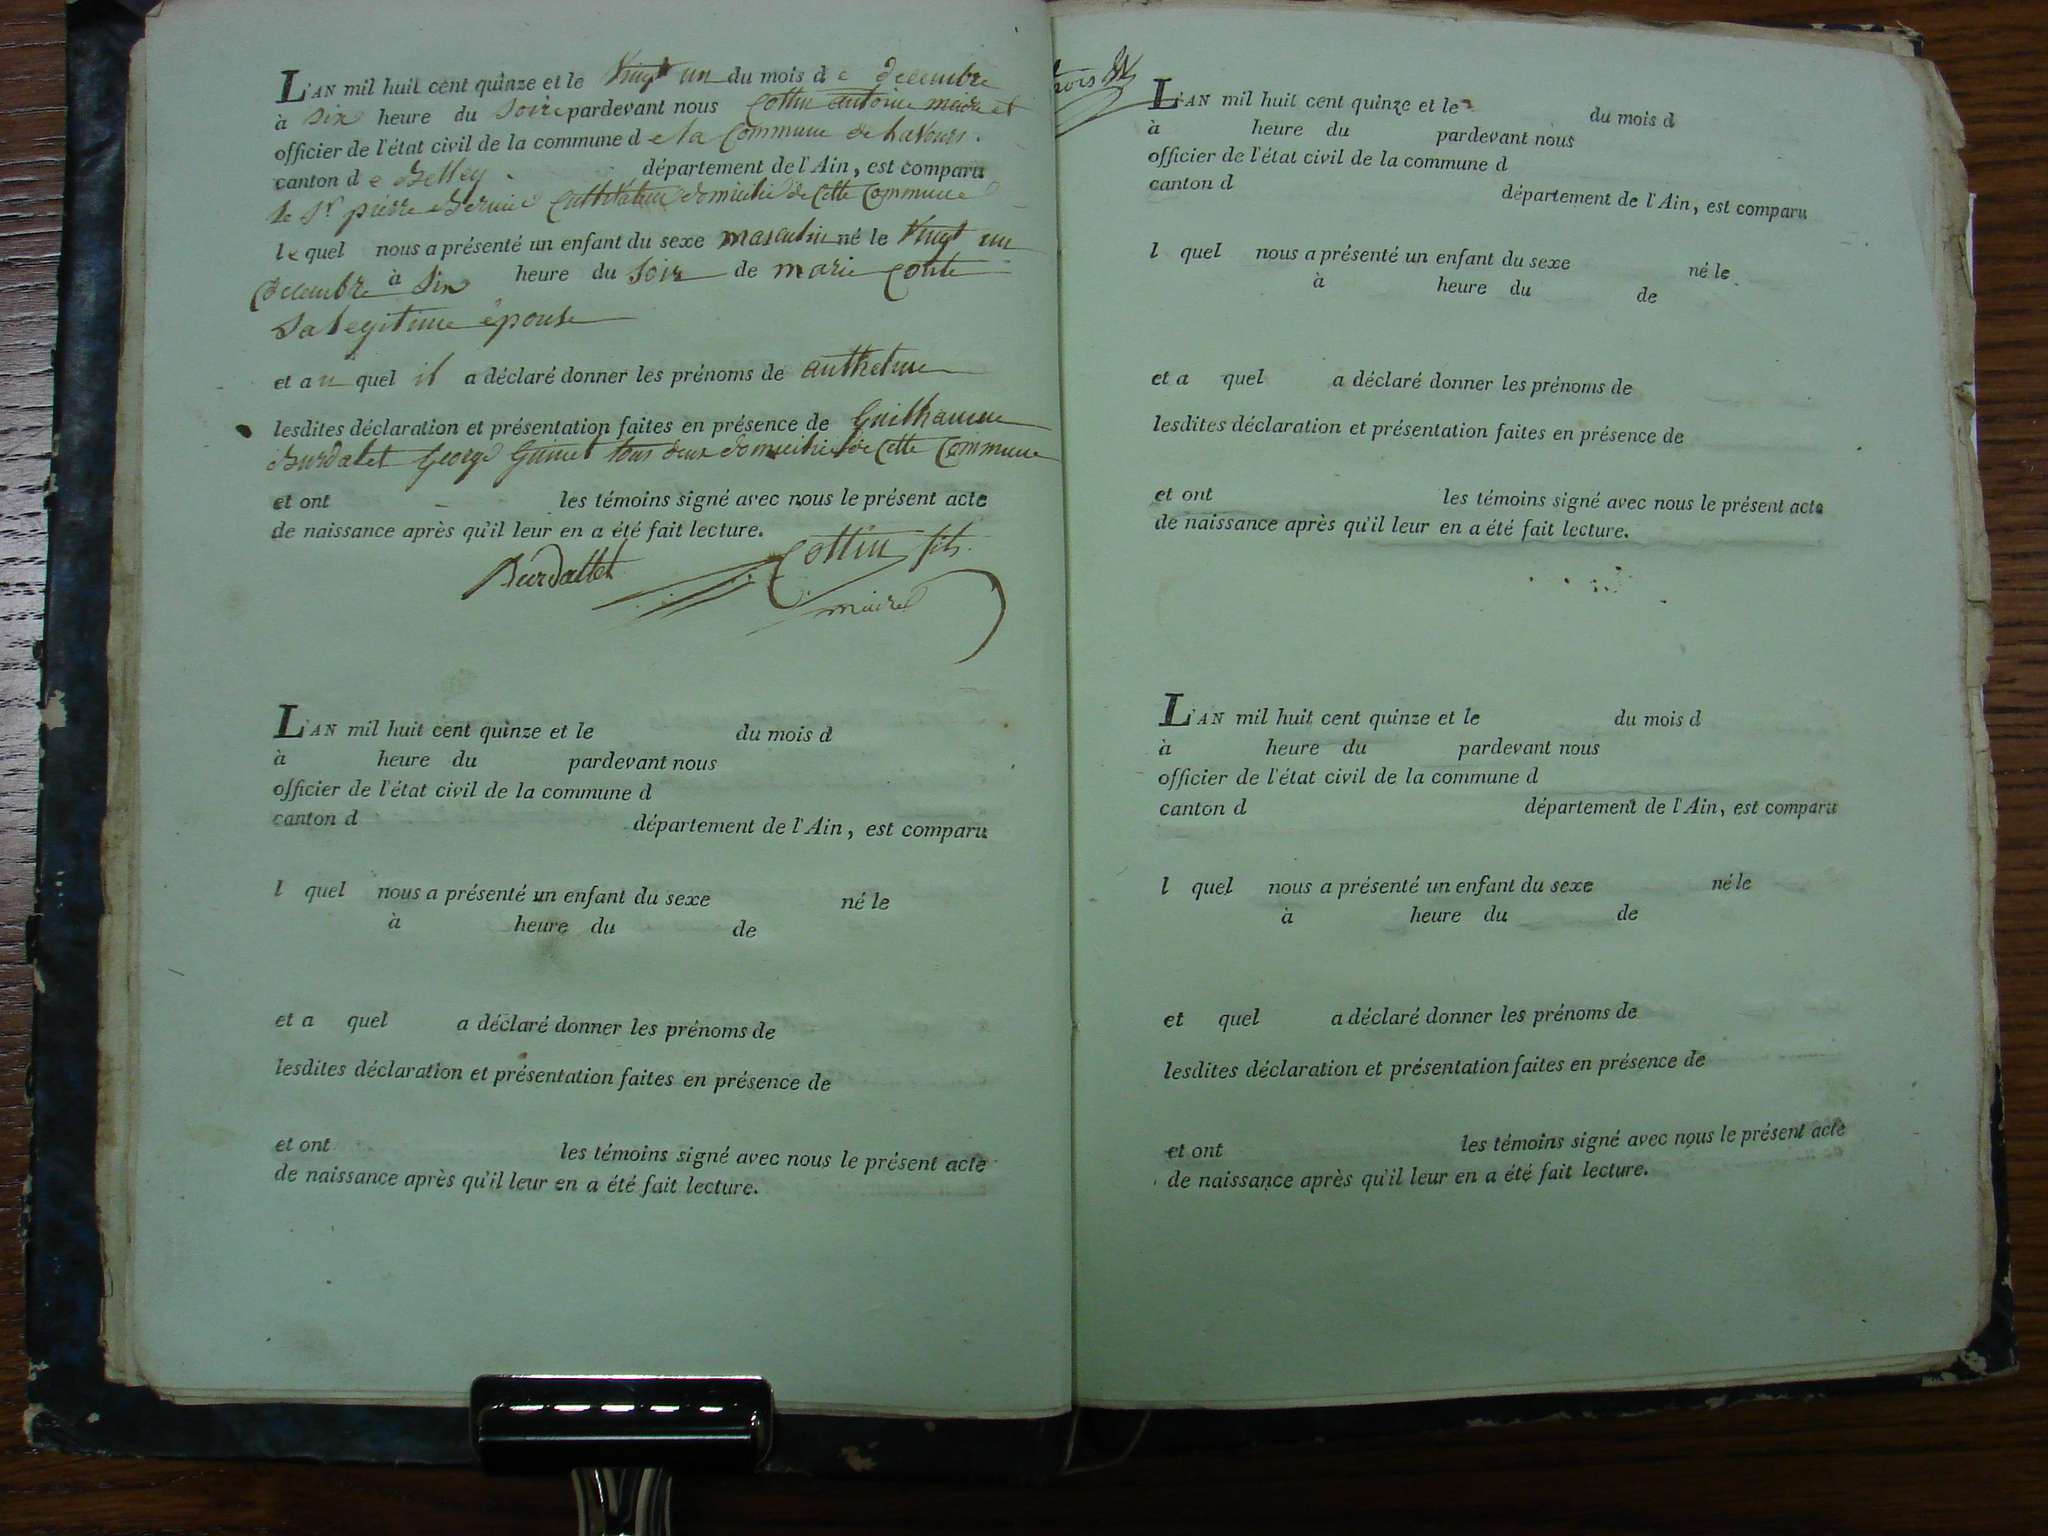 L'AN mil huit cent quinze et le Vingt un du mois d e decembre
à Six heure du Soire pardevant nous Cottin antoine maire et
officier de l'état civil de la commune d e la Commune de Lavours.
canton d e Belley. département de l'Ain, est comparu
le Sr pierre Cultivateur domicilié de Cette Commune
le quel nous a présenté un enfant du sexe masculin né le Vingt un
decembre à Six heure du Soir de marie
Sa legitime épouse
et a u quel il a déclaré donner les prénoms de anthelme
lesdites déclaration et présentation faites en présence de Guilhaume
Burdalet George Guinet tous deux domicilié de Cette Commune
et ont les témoins signé avec nous le présent acte
de naissance après qu'il leur en a été fait lecture.
Burdallet Cottin fils.
maire
L'AN mil huit cent quinze et le du mois d
à heure du pardevant nous
officier de l'état civil de la commune d
canton d département de l'Ain, est comparu
l quel nous a présenté un enfant du sexe né le
à heure du de
et a quel a déclaré donner les prénoms de
lesdites déclaration et présentation faites en présence de
et ont les témoins signé avec nous le présent acte
de naissance après qu'il leur en a été fait lecture.
L'AN mil huit cent quinze et le du mois d
à heure du pardevant nous
officier de l'état civil de la commune d
canton d département de l'Ain, est comparu
l quel nous a présenté un enfant du sexe né le
à heure du de
et a quel a déclaré donner les prénoms de
lesdites déclaration et présentation faites en présence de
et ont les témoins signé avec nous le présent acte
de naissance après qu'il leur en a été fait lecture.
L'AN mil huit cent quinze et le du mois d
à heure du pardevant nous
officier de l'état civil de la commune d
canton d département de l'Ain, est comparu
l quel nous a présenté un enfant du sexe né le
à heure du de
et quel a déclaré donner les prénoms de
lesdites déclaration et présentation faites en présence de
et ont les témoins signé avec nous le présent acte
de naissance après qu'il leur en a été fait lecture.